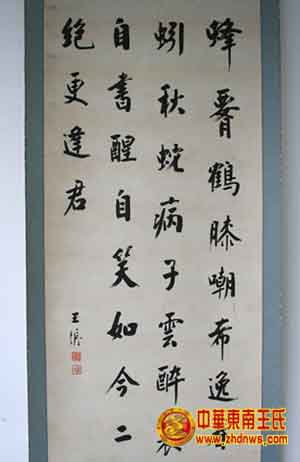 蜂腰鶴膝嘲希逸春
蚓秋蛇病子雲醉裏
自書醒自笑如今二
絶更逢君
王
中華東南王氏
www.zhdnws.com